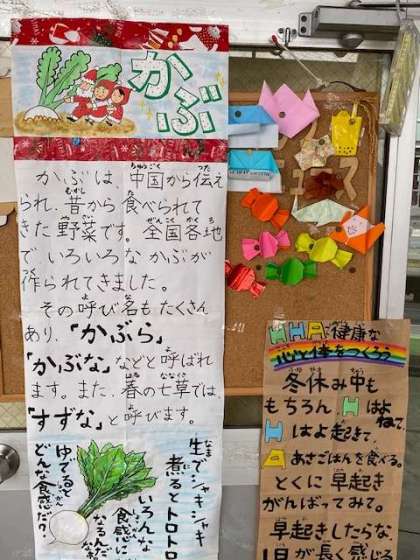 かぶ
かぶは、中国から伝え
られ、昔から食べられて
きた野菜です。全国各地
でいろいろなかぶが
作られてきました。
その呼び名もたくさん
あり、「かぶら」
「かぶな」などと呼ばれ
ます。また、春の七草では、
「すずな」と呼びます。
生でシャキシャキ
煮るとトロトロ
いろんな
食感に
なるん
ゆでると
どんな食感だ?
HHAで健康な
心と体をつくろう
冬休み中も
もちろん、Hはよ
ねて、
Hはよ起きて、
Aあさごはんを食べる。
とくに早起き
がんばってみて。
早起きしたらな、
1日が長く感じる